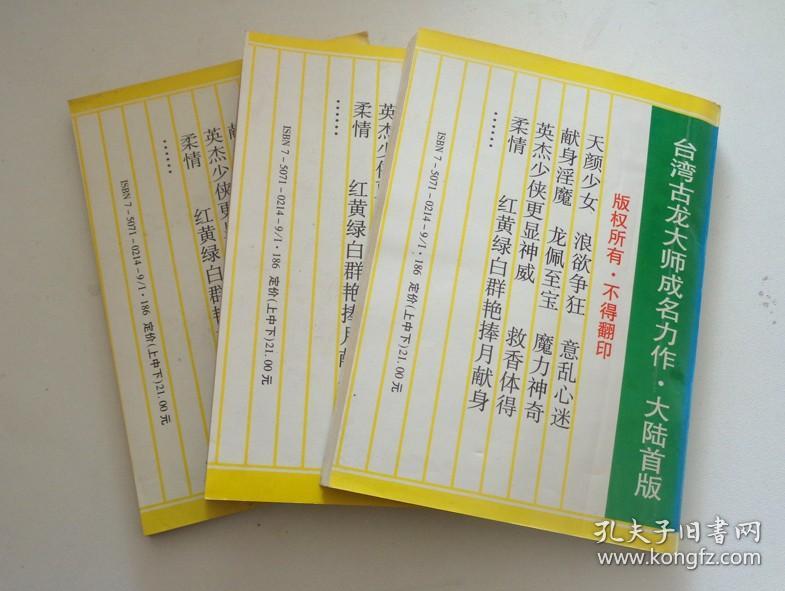 台湾古龙大师成名力作·大陆首版
版权所有·不得翻印
天颜少女、浪欲争狂 意乱心迷
献身淫魔 龙佩至宝 魔力神奇
英杰少侠更显神威 救香体得
柔情 红黄绿白群艳捧月献身
……
ISBN 7-5071-0214-9/1·186 定价(上中下)21.00元
英杰少侠
柔情 红黄绿白群艳捧月
……
ISBN 7-5071-0214-9/1·186 定价(上中下)21.00元
献
英杰少侠更显
柔情 红黄绿白群艳
……
ISBN 7-5071-0214-9/1·186 定价(上中下)21.00元
孔夫子旧书网
www.kongfz.com